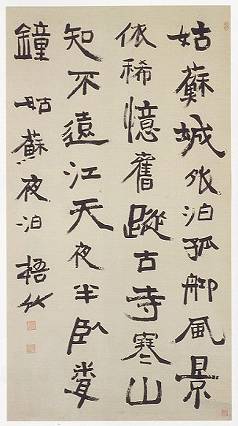 姑蘇城外泊孤風景
依稀憶舊蹤古寺寒山
知不遠江天夜半臥
鐘 姑蘇夜泊 梧竹